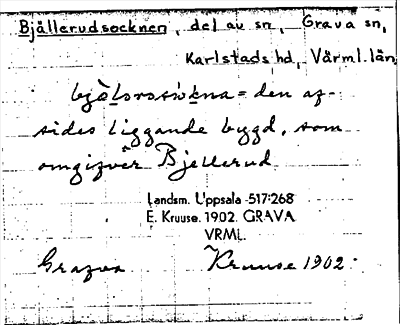 Bjällerudsocknen, del av sn, Grava sn,
Karlstads hd, Värml. län
den af-
sides liggande bygd, som
omgifver Bjellerud
Landsm. Uppsala 517:268
E. Kruuse. 1902. GRAVA
VRML.
Grafva Kruuse 1902.